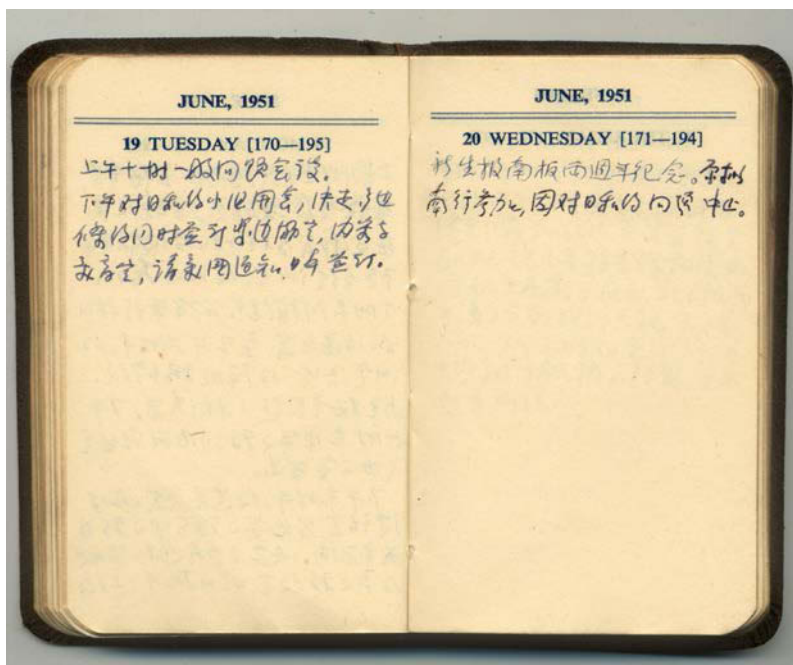 JUNE, 1951
19 TUESDAY [170—195]
上午十时一般问题会议。
下午对日和约小组开会,决定
条约同时签订
,请美国通知,签订。
JUNE, 1951
20 WEDNESDAY [171—194]
新生报南版两週年纪念。原拟
南行参加,因对日和约问题中止。